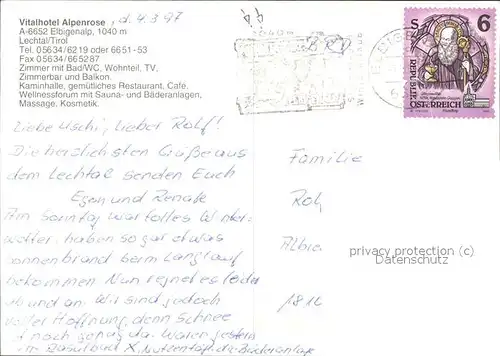 Vitalhotel Alpenrose, d. 4.3.97
A-6652 Elbigenalp, 1040 m
Lechtal/Tirol
Tel. 05634/6219 oder 6651-53
Fax 05634/665287
Zimmer mit Bad/WC, Wohnteil, TV,
Zimmerbar und Balkon.
Kaminhalle, gemütliches Restaurant, Café.
Wellnessforum mit Sauna- und Bäderanlagen,
Massage. Kosmetik.
BRD
S 6
REPUBLIK
ÖSTERREICH
Liebe Uschi, lieber Rolf!
Die herzlichsten Grüße aus
dem Lechtal senden Euch
Egon und Renate
Am Sonntag war tolles Winter-
wetter, haben sogar etwas
Sonnenbrand beim Langlauf
bekommen. Nun regnet es leider
ab und an. Wir sind jedoch
voller Hoffnung, denn Schnee
noch genug da. Waren gestern
Familie
privacy protection (c)
Datenschutz